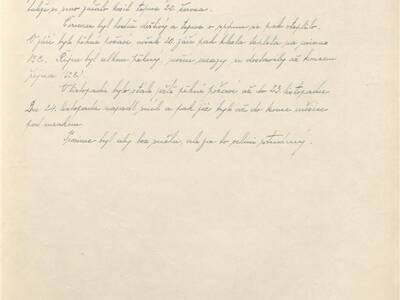 takže se seno začalo kosit teprve 22. června.
Červenec byl hodně deštivý a teprve v srpnu se pak oteplilo.
V září bylo pěkné počasí, avšak 20. září pak klesla teplota na minus
1°C. Říjen byl celkem pěkný, noční mrazy se dostavily až koncem
října
V listopadu bylo stále ještě pěkné počasí až do 23. listopadu.
Dne 24. listopadu napadl sníh a pak již bylo až do konce měsíce
pod mrakem.
Prosinec byl celý bez sněhu, ale za to velmi